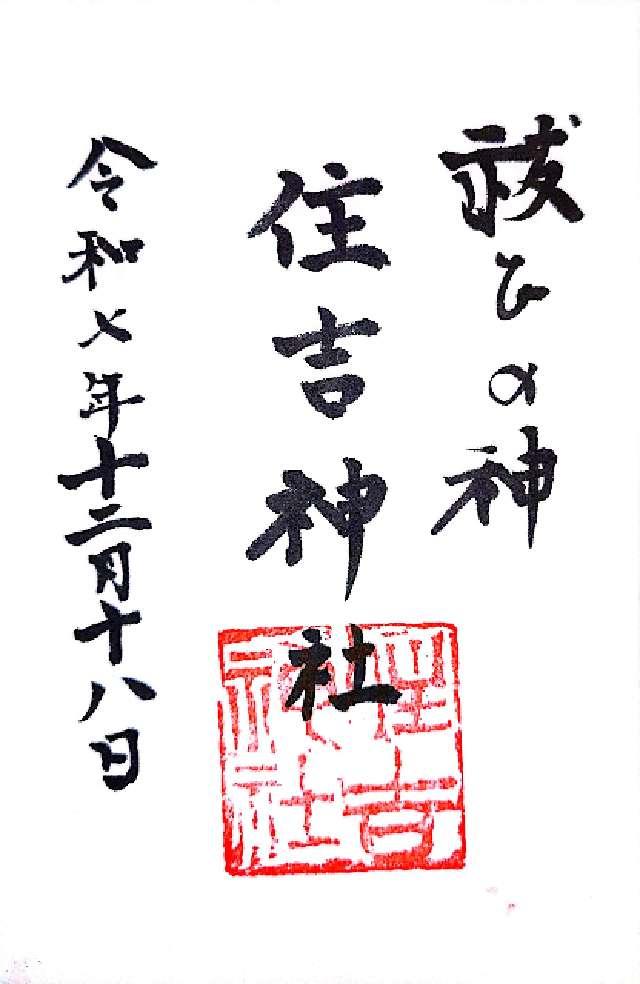 祓ひの神
住吉神社
令和七年十二月十八日
住吉
神社